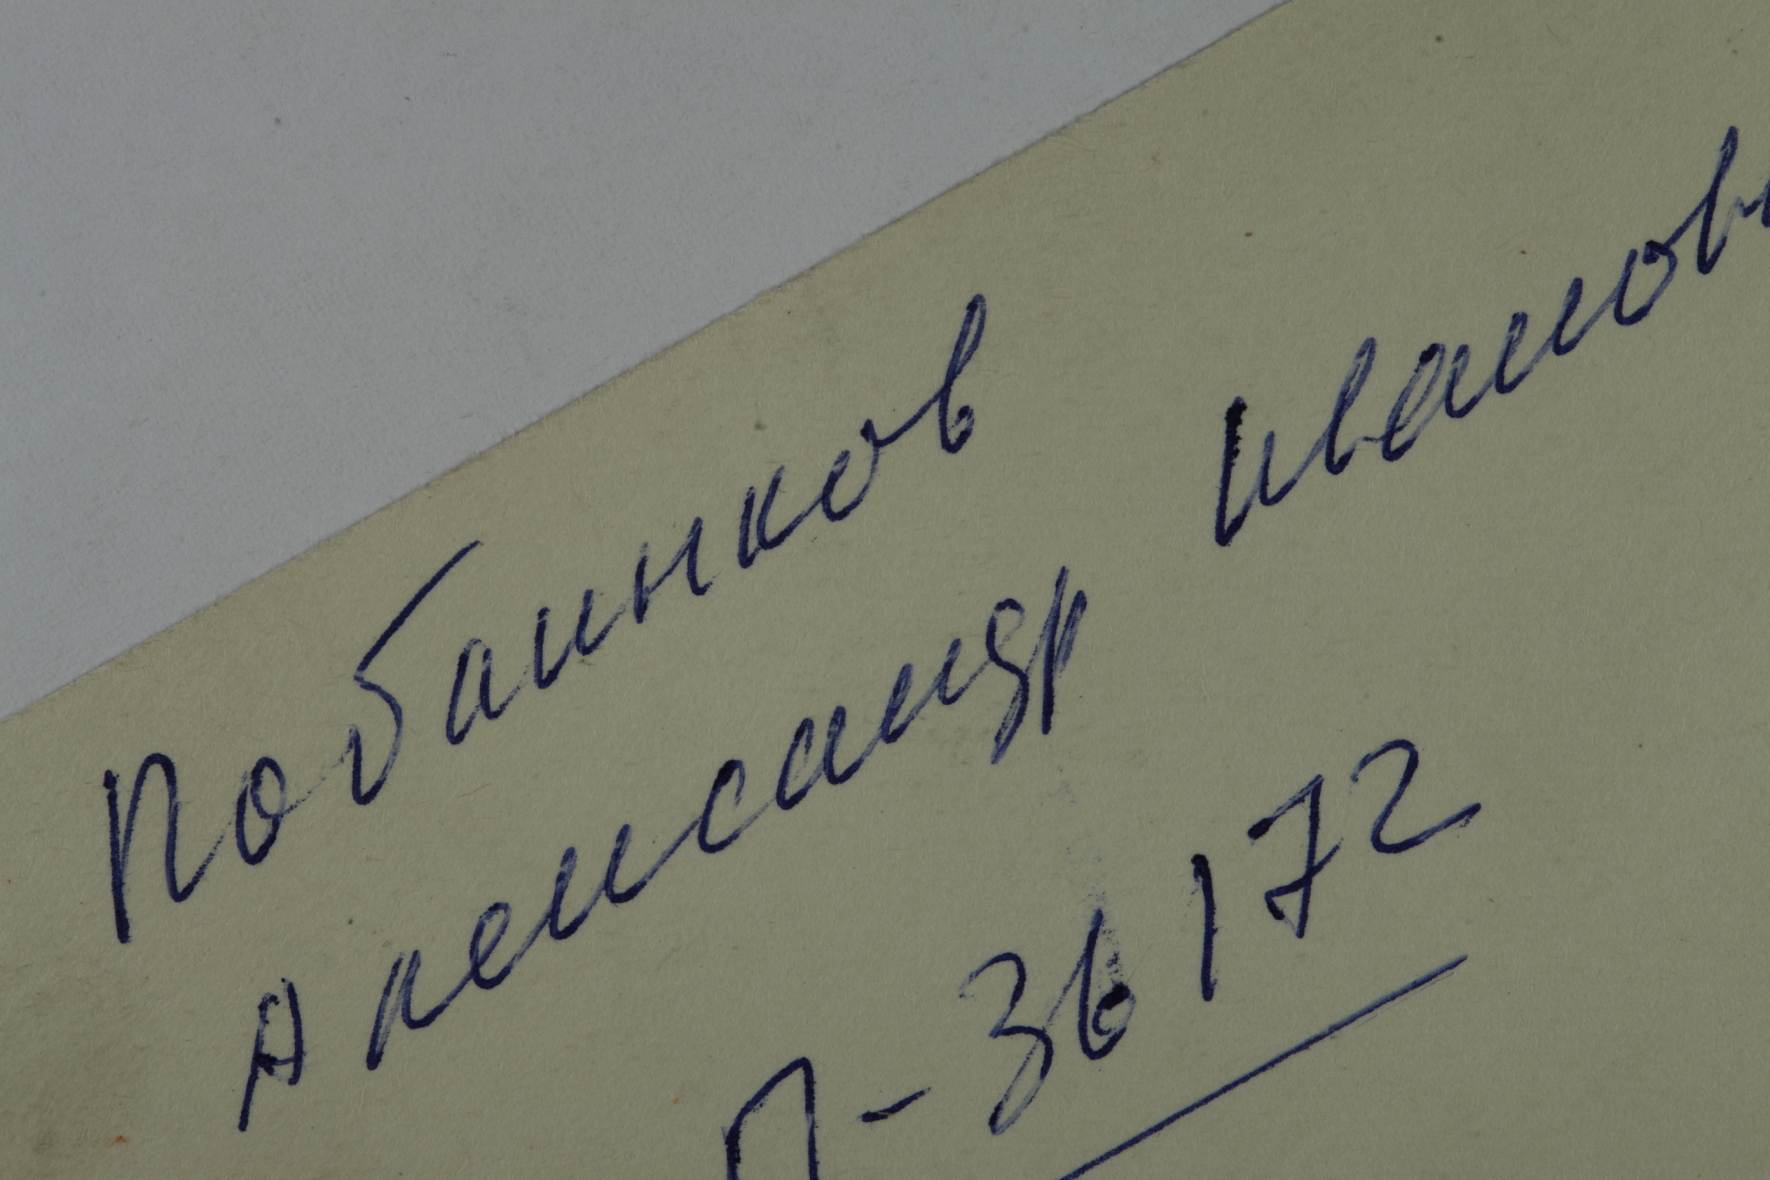 Побаинков
Александр Иванов
П-36172